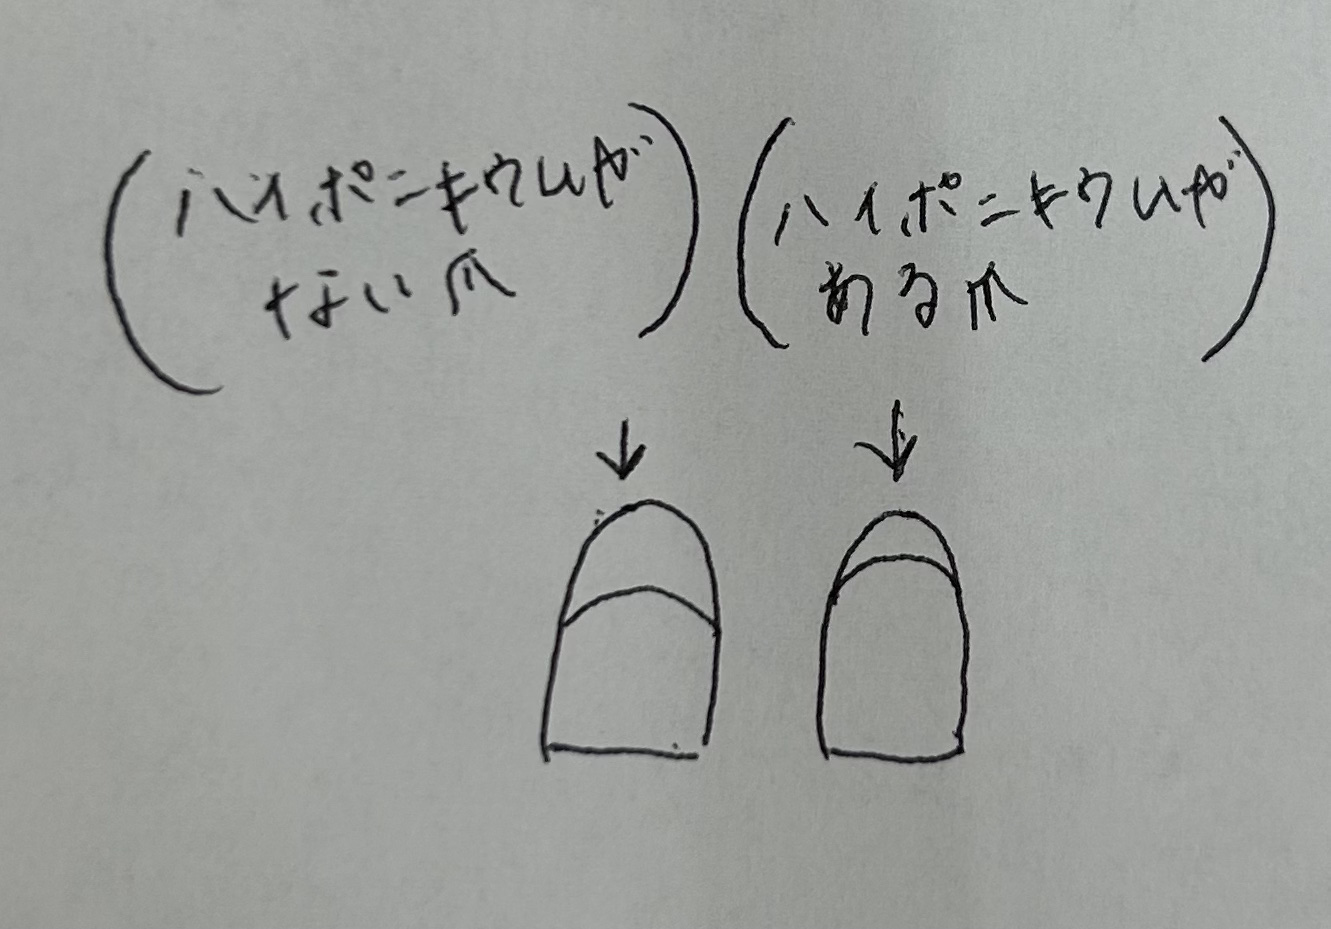 (ハイポニキウムが
ない爪)
(ハイポニキウムが
ある爪)